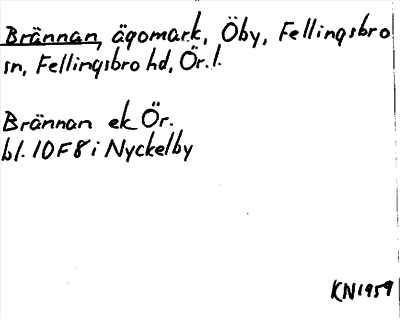 Brännan, ägomark, Öby, Fellingsbro
sn, Fellingsbro hd, Ör. l.
Brännan ek Ör.
bl. 10F8i Nyckelby
KN1959